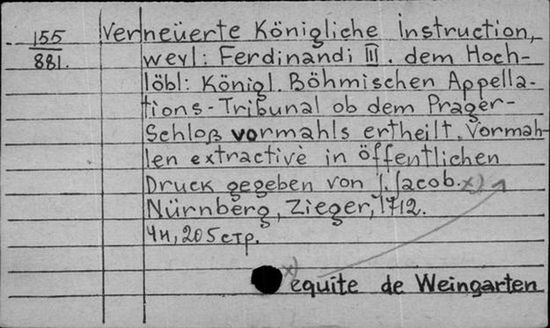 155
881.
Verneüerte Königliche Instruction,
weyl: Ferdinandi III. dem Hoch-
löbl: Königl. Böhmischen Appella-
tions-Tribunal ob dem Prager-
Schloß vormahls ertheilt. Vormah-
len extractivè in öffentlichen
Druck gegeben von J. Jacob. x)
Nürnberg, Zieger, 1712.
4н, 205 стр.
x) equite de Weingarten